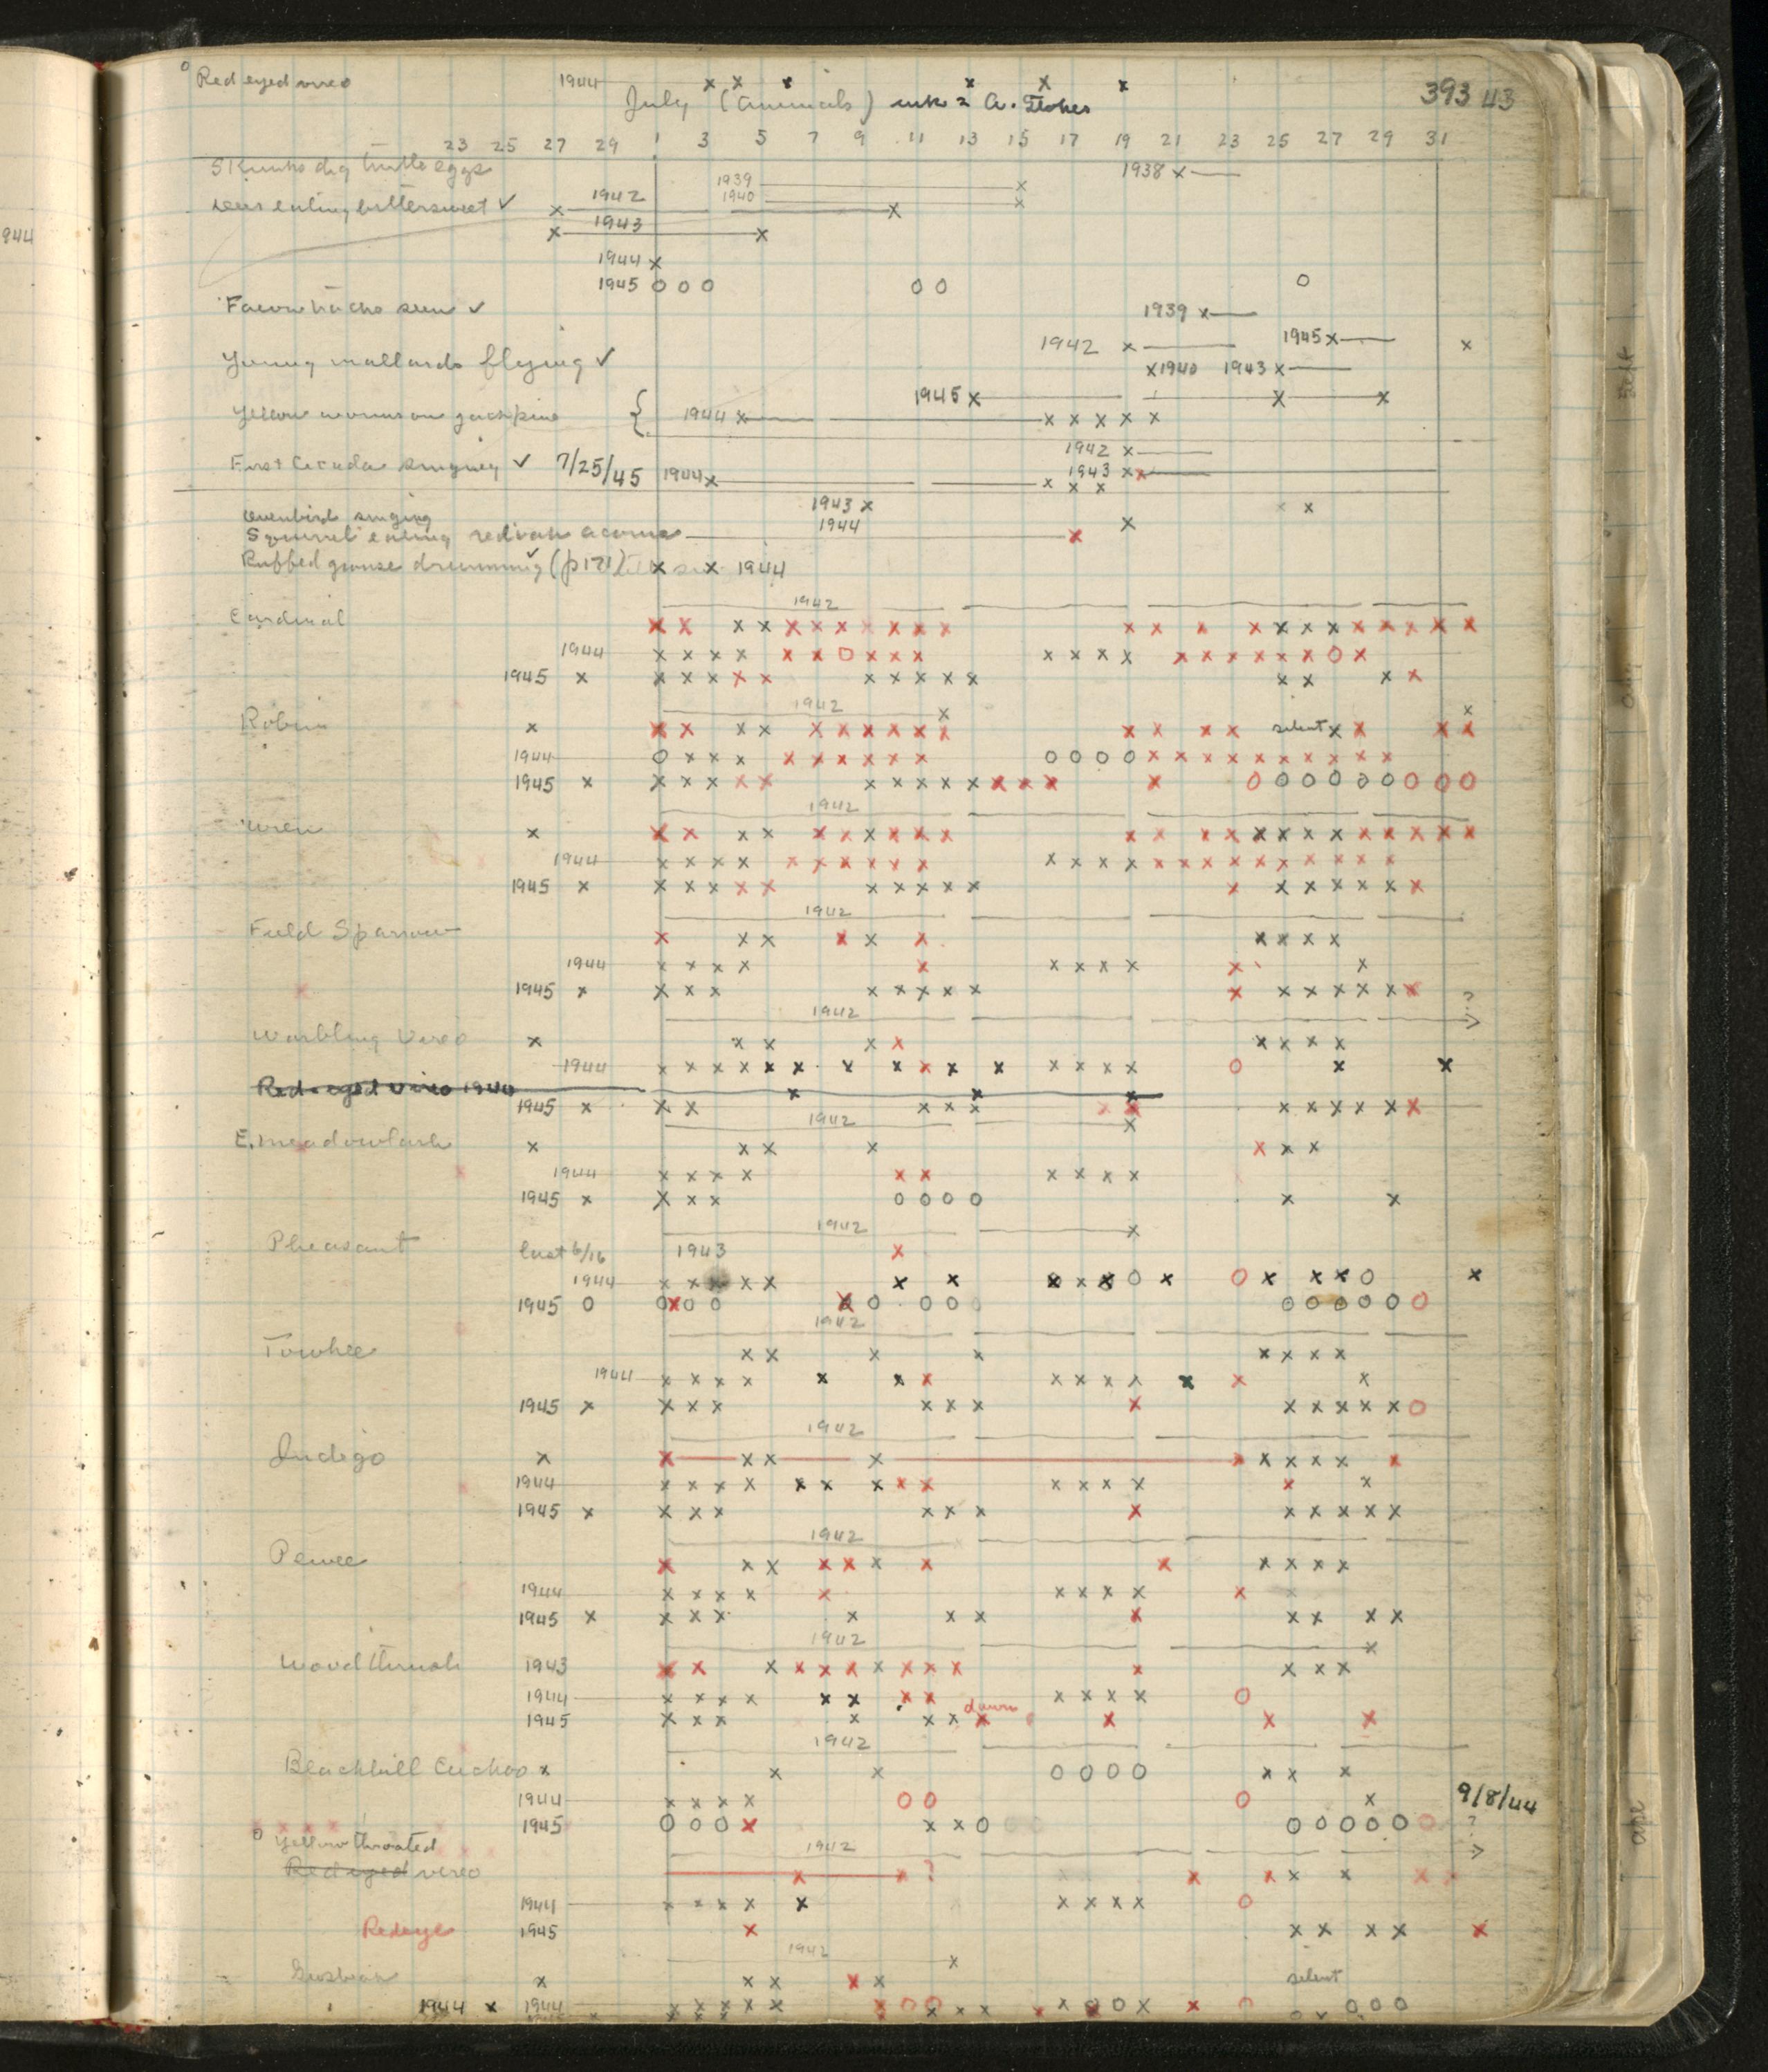 Red eyed vireo 1944 x x x x x x
July (Animals) ink = A. Stokes 393 43
23 25 27 29 1 3 5 7 9 11 13 15 17 19 21 23 25 27 29 31
Skunks dig turtle eggs 1938 x
1939 x
1940 x
Deer eating bittersweet ✓ 1942 x x
944
1943 x x
1944 x
1945 o o o o o o
seen ✓ 1939 x
1942 x 1945 x x
Young mallards flying ✓ x 1940 1943 x
1945 x x x
Yellow worms on jack pine { 1944 x x x x x x
1942 x
First Cicada singing ✓ 7/25/45 1944 x 1943 x x
x x x
1943 x x
Ovenbird singing 1944 x
Squirrel eating red oak acorns x
Ruffed grouse drumming ✓ (p 171) x x 1944
1942
Cardinal
1944
1945
1942
Robin silent
1944
1945
1942
Wren
1944
1945
1942
Field Sparrow
1944
1945
?
1942
Warbling Vireo
1944
Red-eyed vireo 1944
1945
1942
E. meadowlark
1944
1945
1942
Pheasant last 6/16 1943
1944
1945
1942
Towhee
1944
1945
1942
Indigo
1944
1945
1942
Pewee
1944
1945
1942
Wood thrush 1943
1944
dawn
1945
1942
Blackbill Cuckoo
1944 9/8/44
1945 ?
Yellow throated 1942
Red eyed vireo ?
1944
Redeye 1945
1942
Grosbeak silent
1944 x 1944